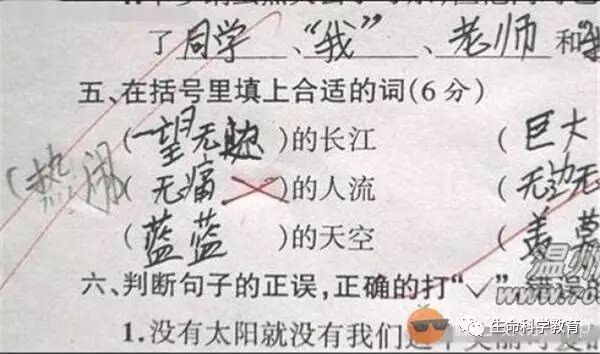 了同学、“我”、老师和“我
五、在括号里填上合适的词(6分)
(一望无)的长江 (巨大
(热闹) (无痛)的人流 (无边无
(蓝蓝)的天空 (盖
六、判断句子的正误,正确的打“✓”,错误的
1.没有太阳就没有我们这个美丽可爱的
温州
www.70
生命科学教育